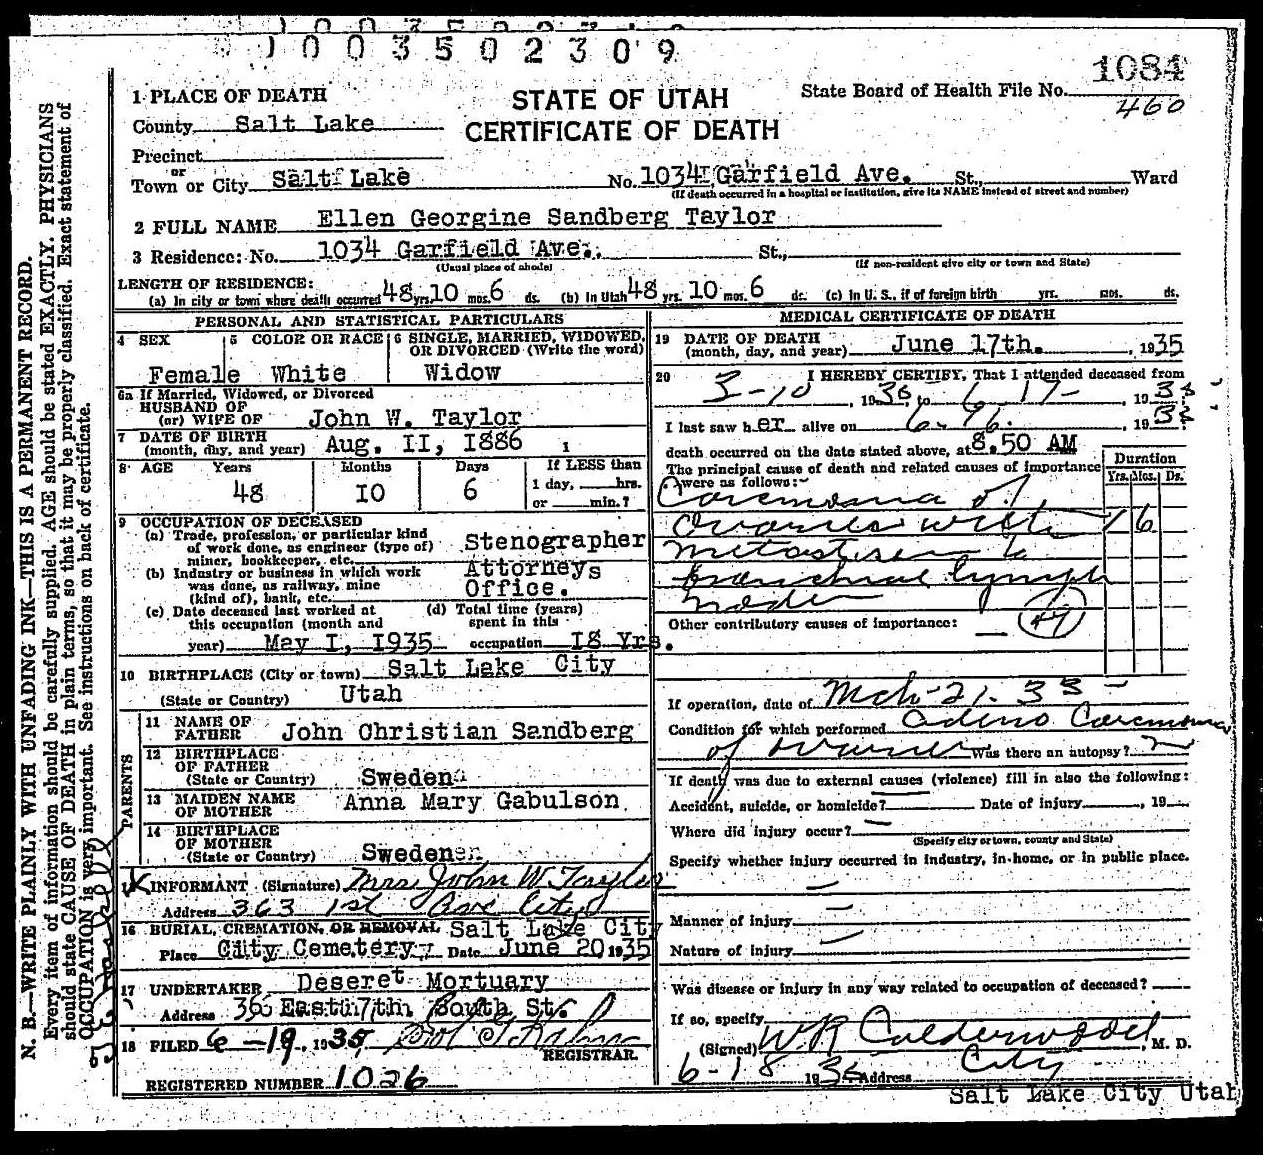 1003502309
1084
State Board of Health File No.
460
STATE OF UTAH
CERTIFICATE OF DEATH
1 PLACE OF DEATH
County Salt Lake
Precinct
or
Town or City Salt Lake No. 1034 Garfield Ave. St., Ward
(If death occurred in a hospital or institution, give its NAME instead of street and number)
2 FULL NAME Ellen Georgine Sandberg Taylor
3 Residence: No. 1034 Garfield Ave. St.,
(Usual place of abode) (If non-resident give city or town and State)
LENGTH OF RESIDENCE:
(a) In city or town where death occurred 48 yrs. 10 mos. 6 ds. (b) In Utah 48 yrs. 10 mos. 6 ds. (c) In U. S., if of foreign birth yrs. mos. ds.
PERSONAL AND STATISTICAL PARTICULARS
4 SEX 5 COLOR OR RACE 6 SINGLE, MARRIED, WIDOWED, OR DIVORCED (Write the word)
Female White Widow
6a If Married, Widowed, or Divorced
HUSBAND OF
(or) WIFE OF John W. Taylor
7 DATE OF BIRTH
(month, day, and year) Aug. II, I886
8 AGE Years Months Days If LESS than
48 IO 6 1 day, hrs.
or min.?
9 OCCUPATION OF DECEASED
(a) Trade, profession, or particular kind
of work done, as engineer (type of)
miner, bookkeeper, etc. Stenographer
(b) Industry or business in which work
was done, as railway, mine
(kind of), bank, etc. Attorneys Office.
(c) Date deceased last worked at
this occupation (month and
year) May I, I935
(d) Total time (years)
spent in this
occupation I8 Yrs.
10 BIRTHPLACE (City or town) Salt Lake City
(State or Country) Utah
PARENTS
11 NAME OF
FATHER John Christian Sandberg
12 BIRTHPLACE
OF FATHER
(State or Country) Sweden
13 MAIDEN NAME
OF MOTHER Anna Mary Gabulson
14 BIRTHPLACE
OF MOTHER
(State or Country) Sweden
INFORMANT (Signature) Mrs John W. Taylor
Address 363 1st Ave City
16 BURIAL, CREMATION, OR REMOVAL Salt Lake City
Place City Cemetery Date June 20 1935
17 UNDERTAKER Deseret Mortuary
Address 36 East 7th South St.
18 FILED 6-19, 1935
REGISTRAR.
REGISTERED NUMBER 1026
MEDICAL CERTIFICATE OF DEATH
19 DATE OF DEATH
(month, day, and year) June 17th. , 1935
20 I HEREBY CERTIFY, That I attended deceased from
3-10, 1935, to 6-17-, 193
I last saw her alive on 6-16. , 193
death occurred on the date stated above, at 8.50 AM
The principal cause of death and related causes of importance
were as follows:
Duration
Yrs. Mos. Ds.
Carcinoma of
Ovaries with 1 6
metastises to
bronchial lymph
nodes
Other contributory causes of importance:
49
If operation, date of Mch-21-33
Condition for which performed Adeno Carcinoma
of Ovaries Was there an autopsy?
If death was due to external causes (violence) fill in also the following:
Accident, suicide, or homicide? Date of injury , 19
Where did injury occur?
(Specify city or town, county and State)
Specify whether injury occurred in industry, in home, or in public place.
Manner of injury
Nature of injury
Was disease or injury in any way related to occupation of deceased?
If so, specify
(Signed) W R Calderwood, M. D.
6-18 1935 Address City
Salt Lake City Utah
N. B.—WRITE PLAINLY WITH UNFADING INK—THIS IS A PERMANENT RECORD.
Every item of information should be carefully supplied. AGE should be stated EXACTLY. PHYSICIANS
should state CAUSE OF DEATH in plain terms, so that it may be properly classified. Exact statement of
OCCUPATION is very important. See instructions on back of certificate.